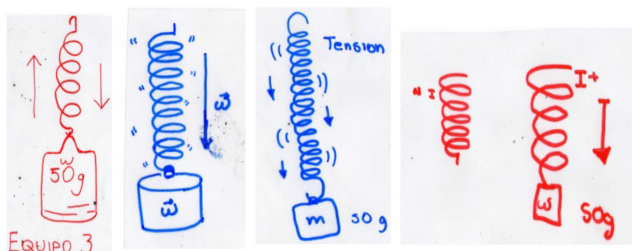 w
50g
EQUIPO 3
w
w
Tension
m 50 g
I
I+
w
50g